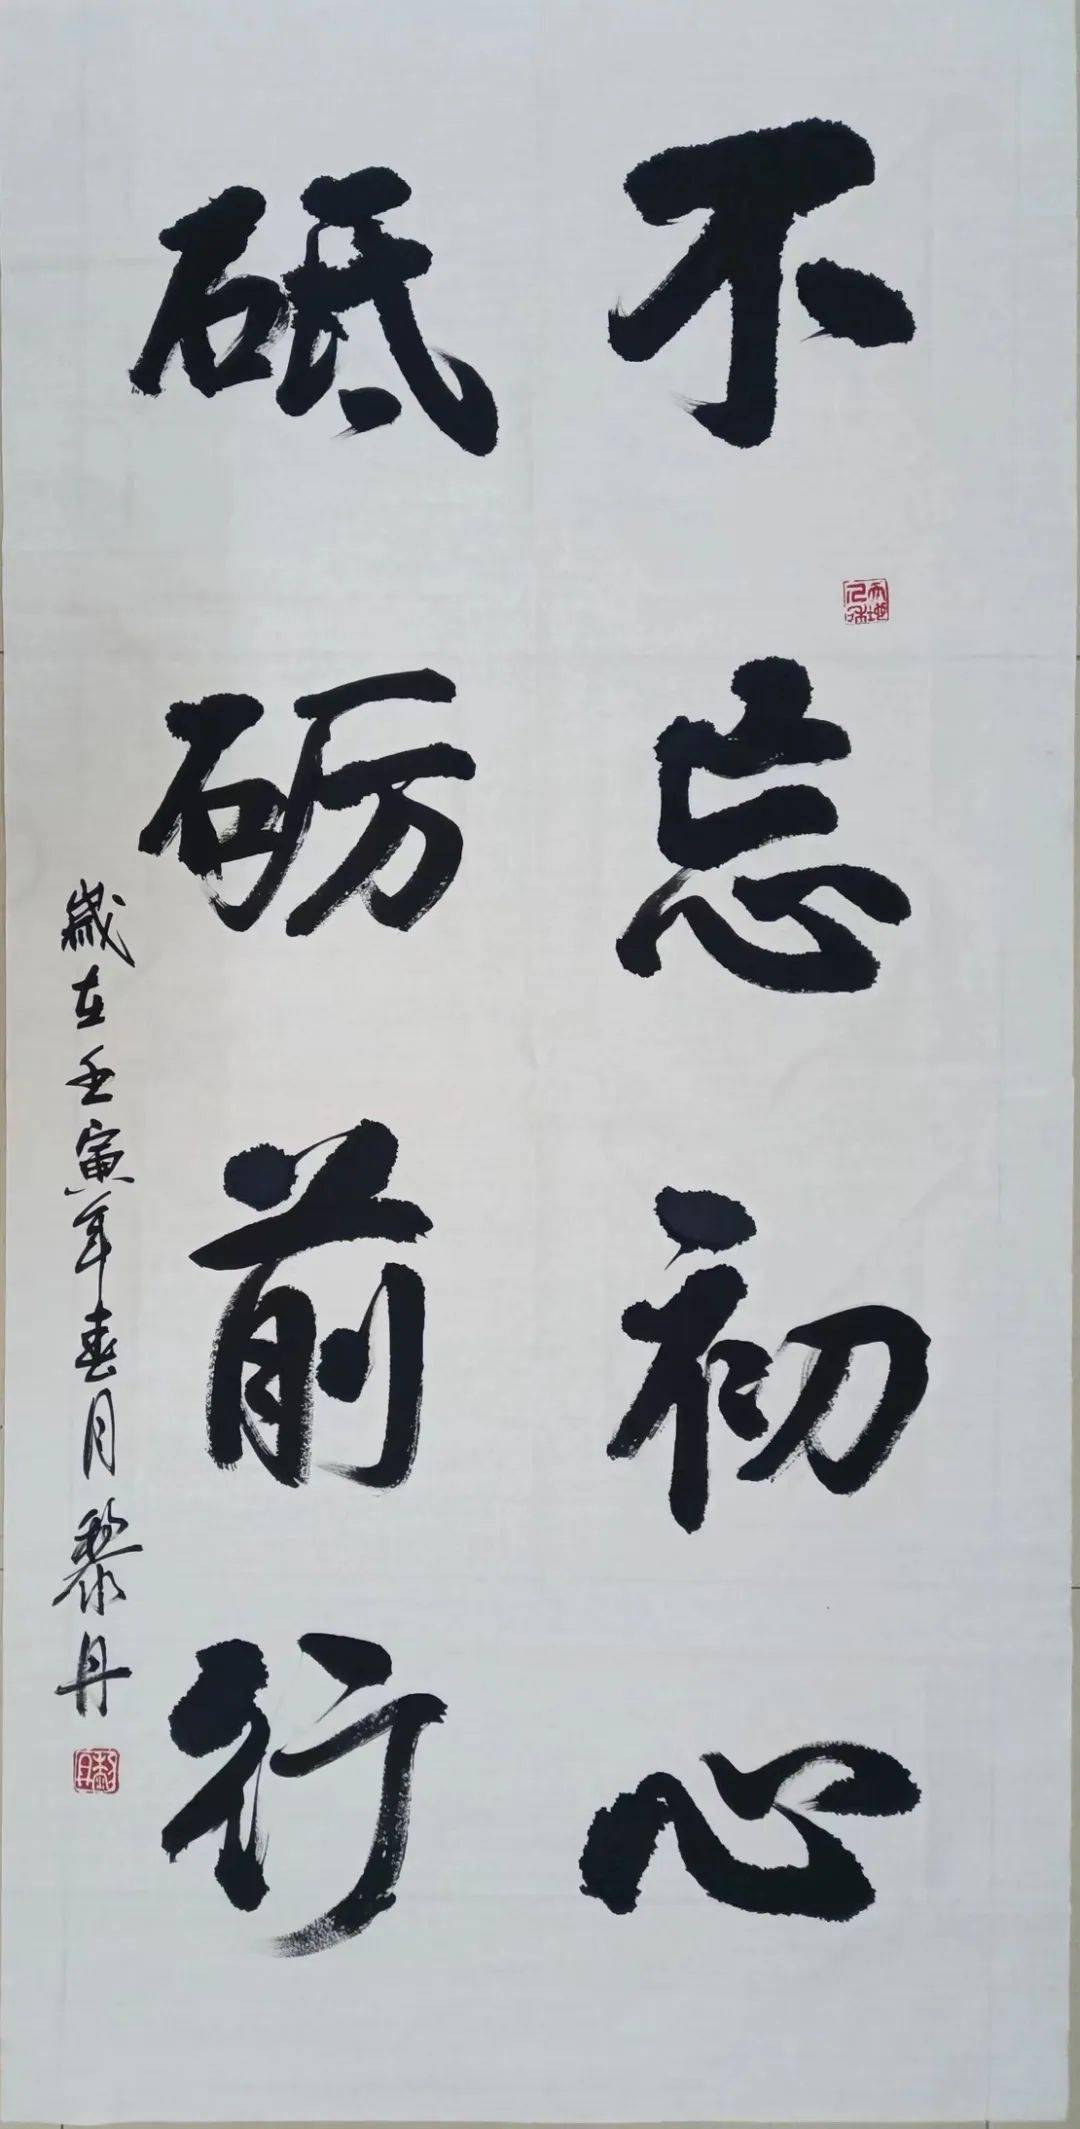 不忘初心
砥砺前行
歲在壬寅年春月黎丹